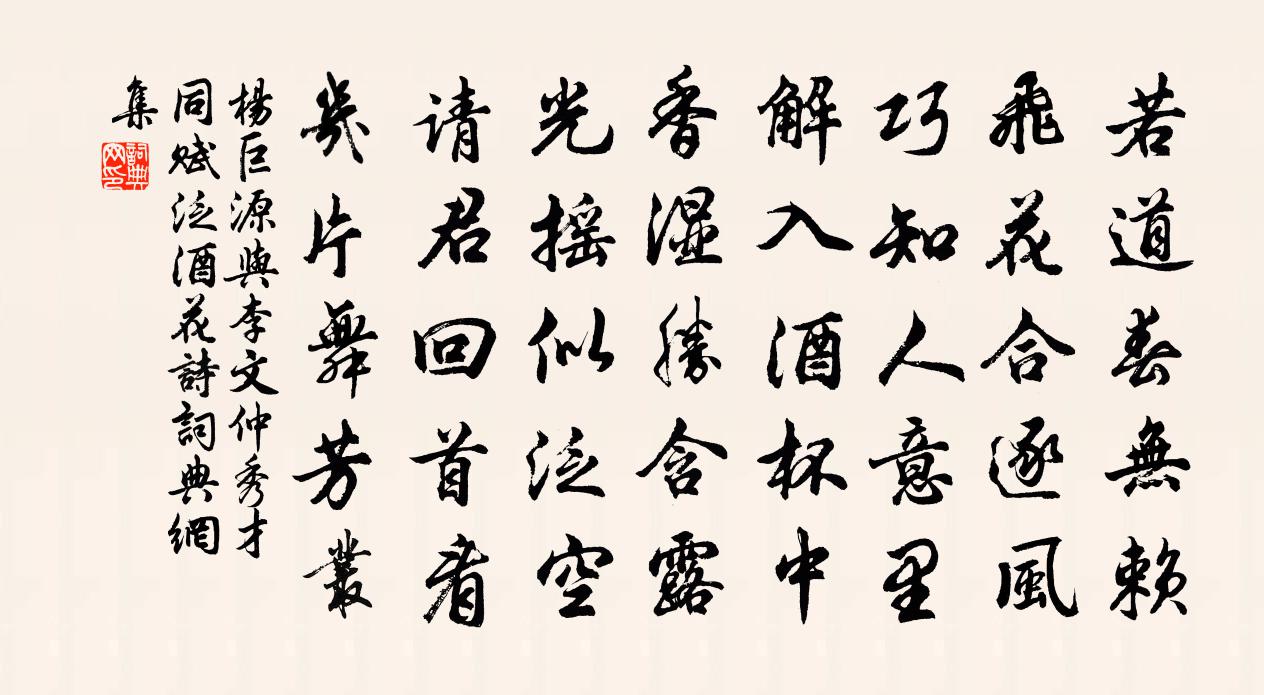 若道春無賴
飛花合逐風
巧知人意里
解入酒杯中
香湿勝含露
光摇似泛空
请君回首看
幾片舞芳叢
楊巨源與李文仲秀才
同赋泛酒花詩詞典網
集
詞典網印